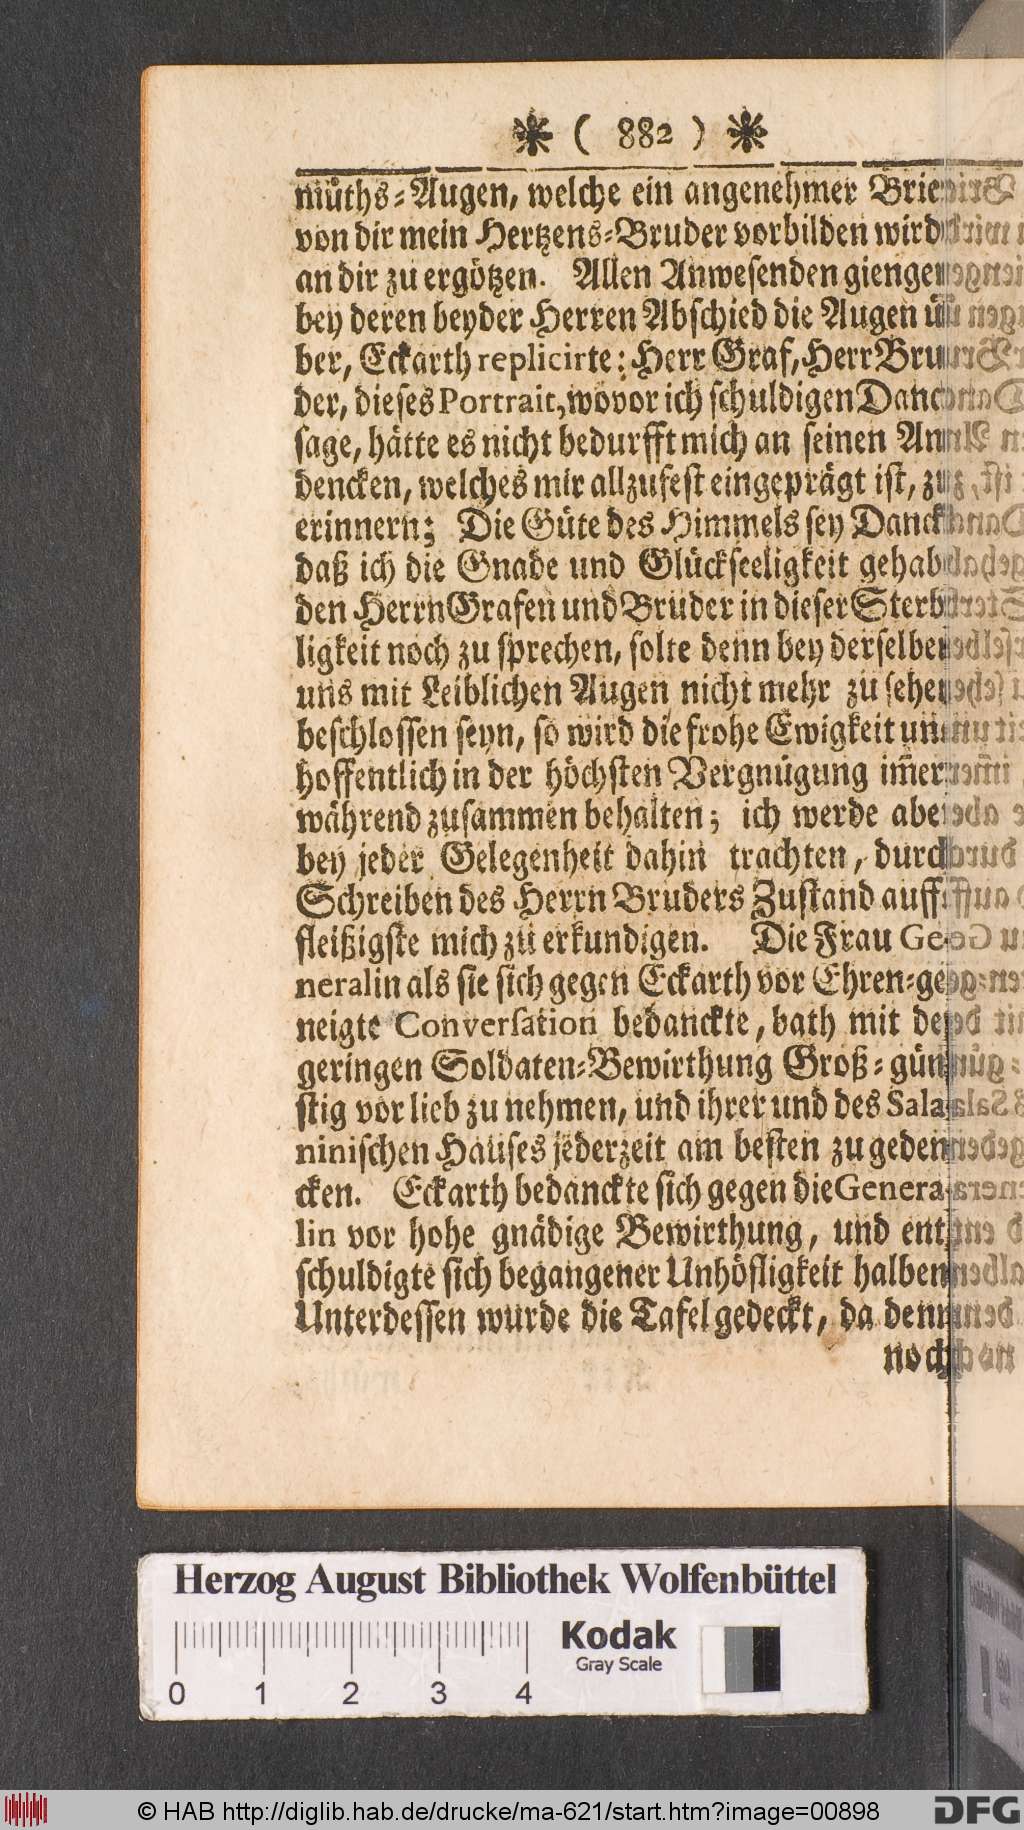 ✱ ( 882 ) ✱
müths⸗Augen, welche ein angenehmer Brie
von dir mein Hertzens⸗Bruder vorbilden wird
an dir zu ergötzen. Allen Anwesenden gienge
bey deren beyder Herren Abschied die Augen ü
ber, Eckarth replicirte: Herr Graf, Herr Bru
der, dieses Portrait, wovor ich schuldigen Danc
sage, hätte es nicht bedurfft mich an seinen An
dencken, welches mir allzufest eingeprägt ist, zu
erinnern; Die Güte des Himmels sey Danck
daß ich die Gnade und Glückseeligkeit gehab
den Herrn Grafen und Bruder in dieser Sterb
ligkeit noch zu sprechen, solte denn bey derselben
uns mit Leiblichen Augen nicht mehr zu sehen
beschlossen seyn, so wird die frohe Ewigkeit un
hoffentlich in der höchsten Vergnügung im̃er
während zusammen behalten; ich werde aber
bey jeder Gelegenheit dahin trachten, durch
Schreiben des Herrn Bruders Zustand auff
fleißigste mich zu erkundigen. Die Frau Ge-
neralin als sie sich gegen Eckarth vor Ehren⸗ge
neigte Conversation bedanckte, bath mit der
geringen Soldaten⸗Bewirthung Groß⸗gün
stig vor lieb zu nehmen, und ihrer und des Sala-
ninischen Hauses jederzeit am besten zu geden
cken. Eckarth bedanckte sich gegen die Genera-
lin vor hohe gnädige Bewirthung, und ent
schuldigte sich begangener Unhöfligkeit halben
Unterdessen wurde die Tafel gedeckt, da denn
noch
Herzog August Bibliothek Wolfenbüttel
Kodak
Gray Scale
0 1 2 3 4
© HAB http://diglib.hab.de/drucke/ma-621/start.htm?image=00898
DFG